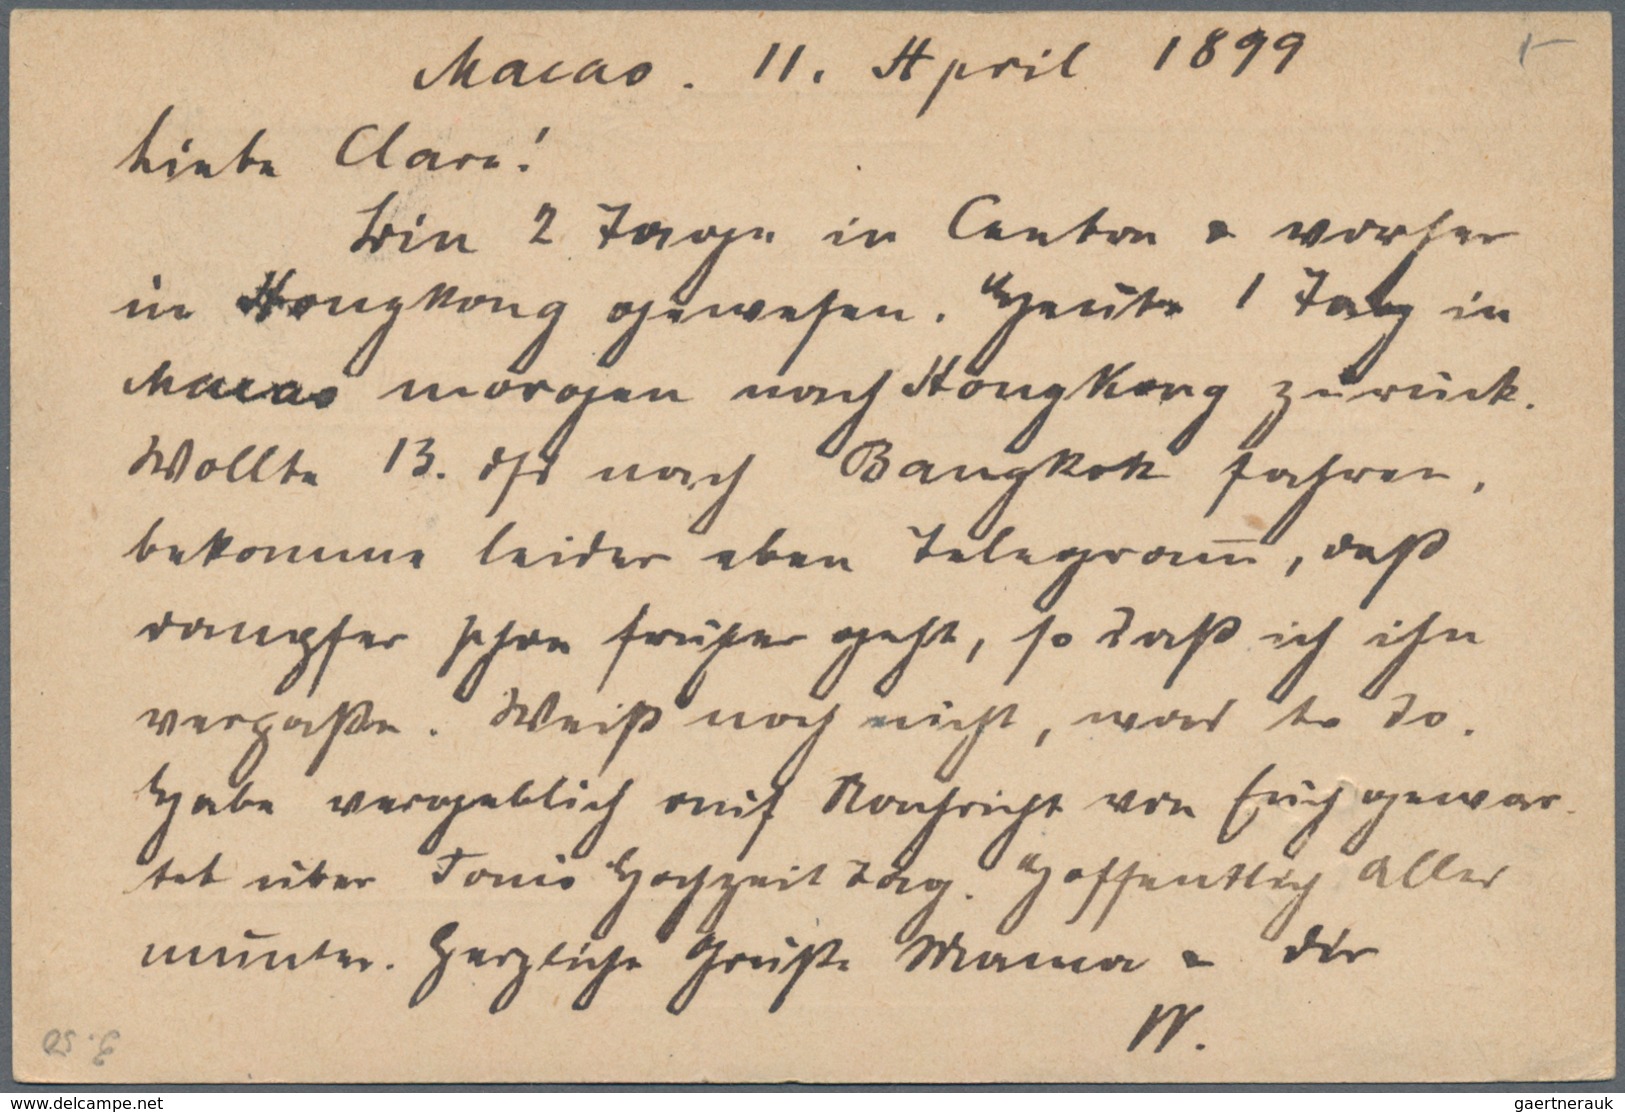 Macao. 11. April 1899
Liebe Clara!
bin 2 Tage in Canton & vorher
in Hongkong gewesen. Heute 1 Tag in
Macao morgen nach Hongkong zurück.
Wollte 13. ds nach Bangkok fahren,
bekomme leider eben Telegram̅, daß
dampfer schon früher geht, so daß ich ihn
verpaße. Weiß noch nicht, was to do.
Habe vergeblich auf Nachricht von Euch gewar-
tet über Tonis Hochzeit tag. Hoffentlich Alles
munter. Herzliche Grüße Mama & dir
W.
www.delcampe.net
gaertnerauk